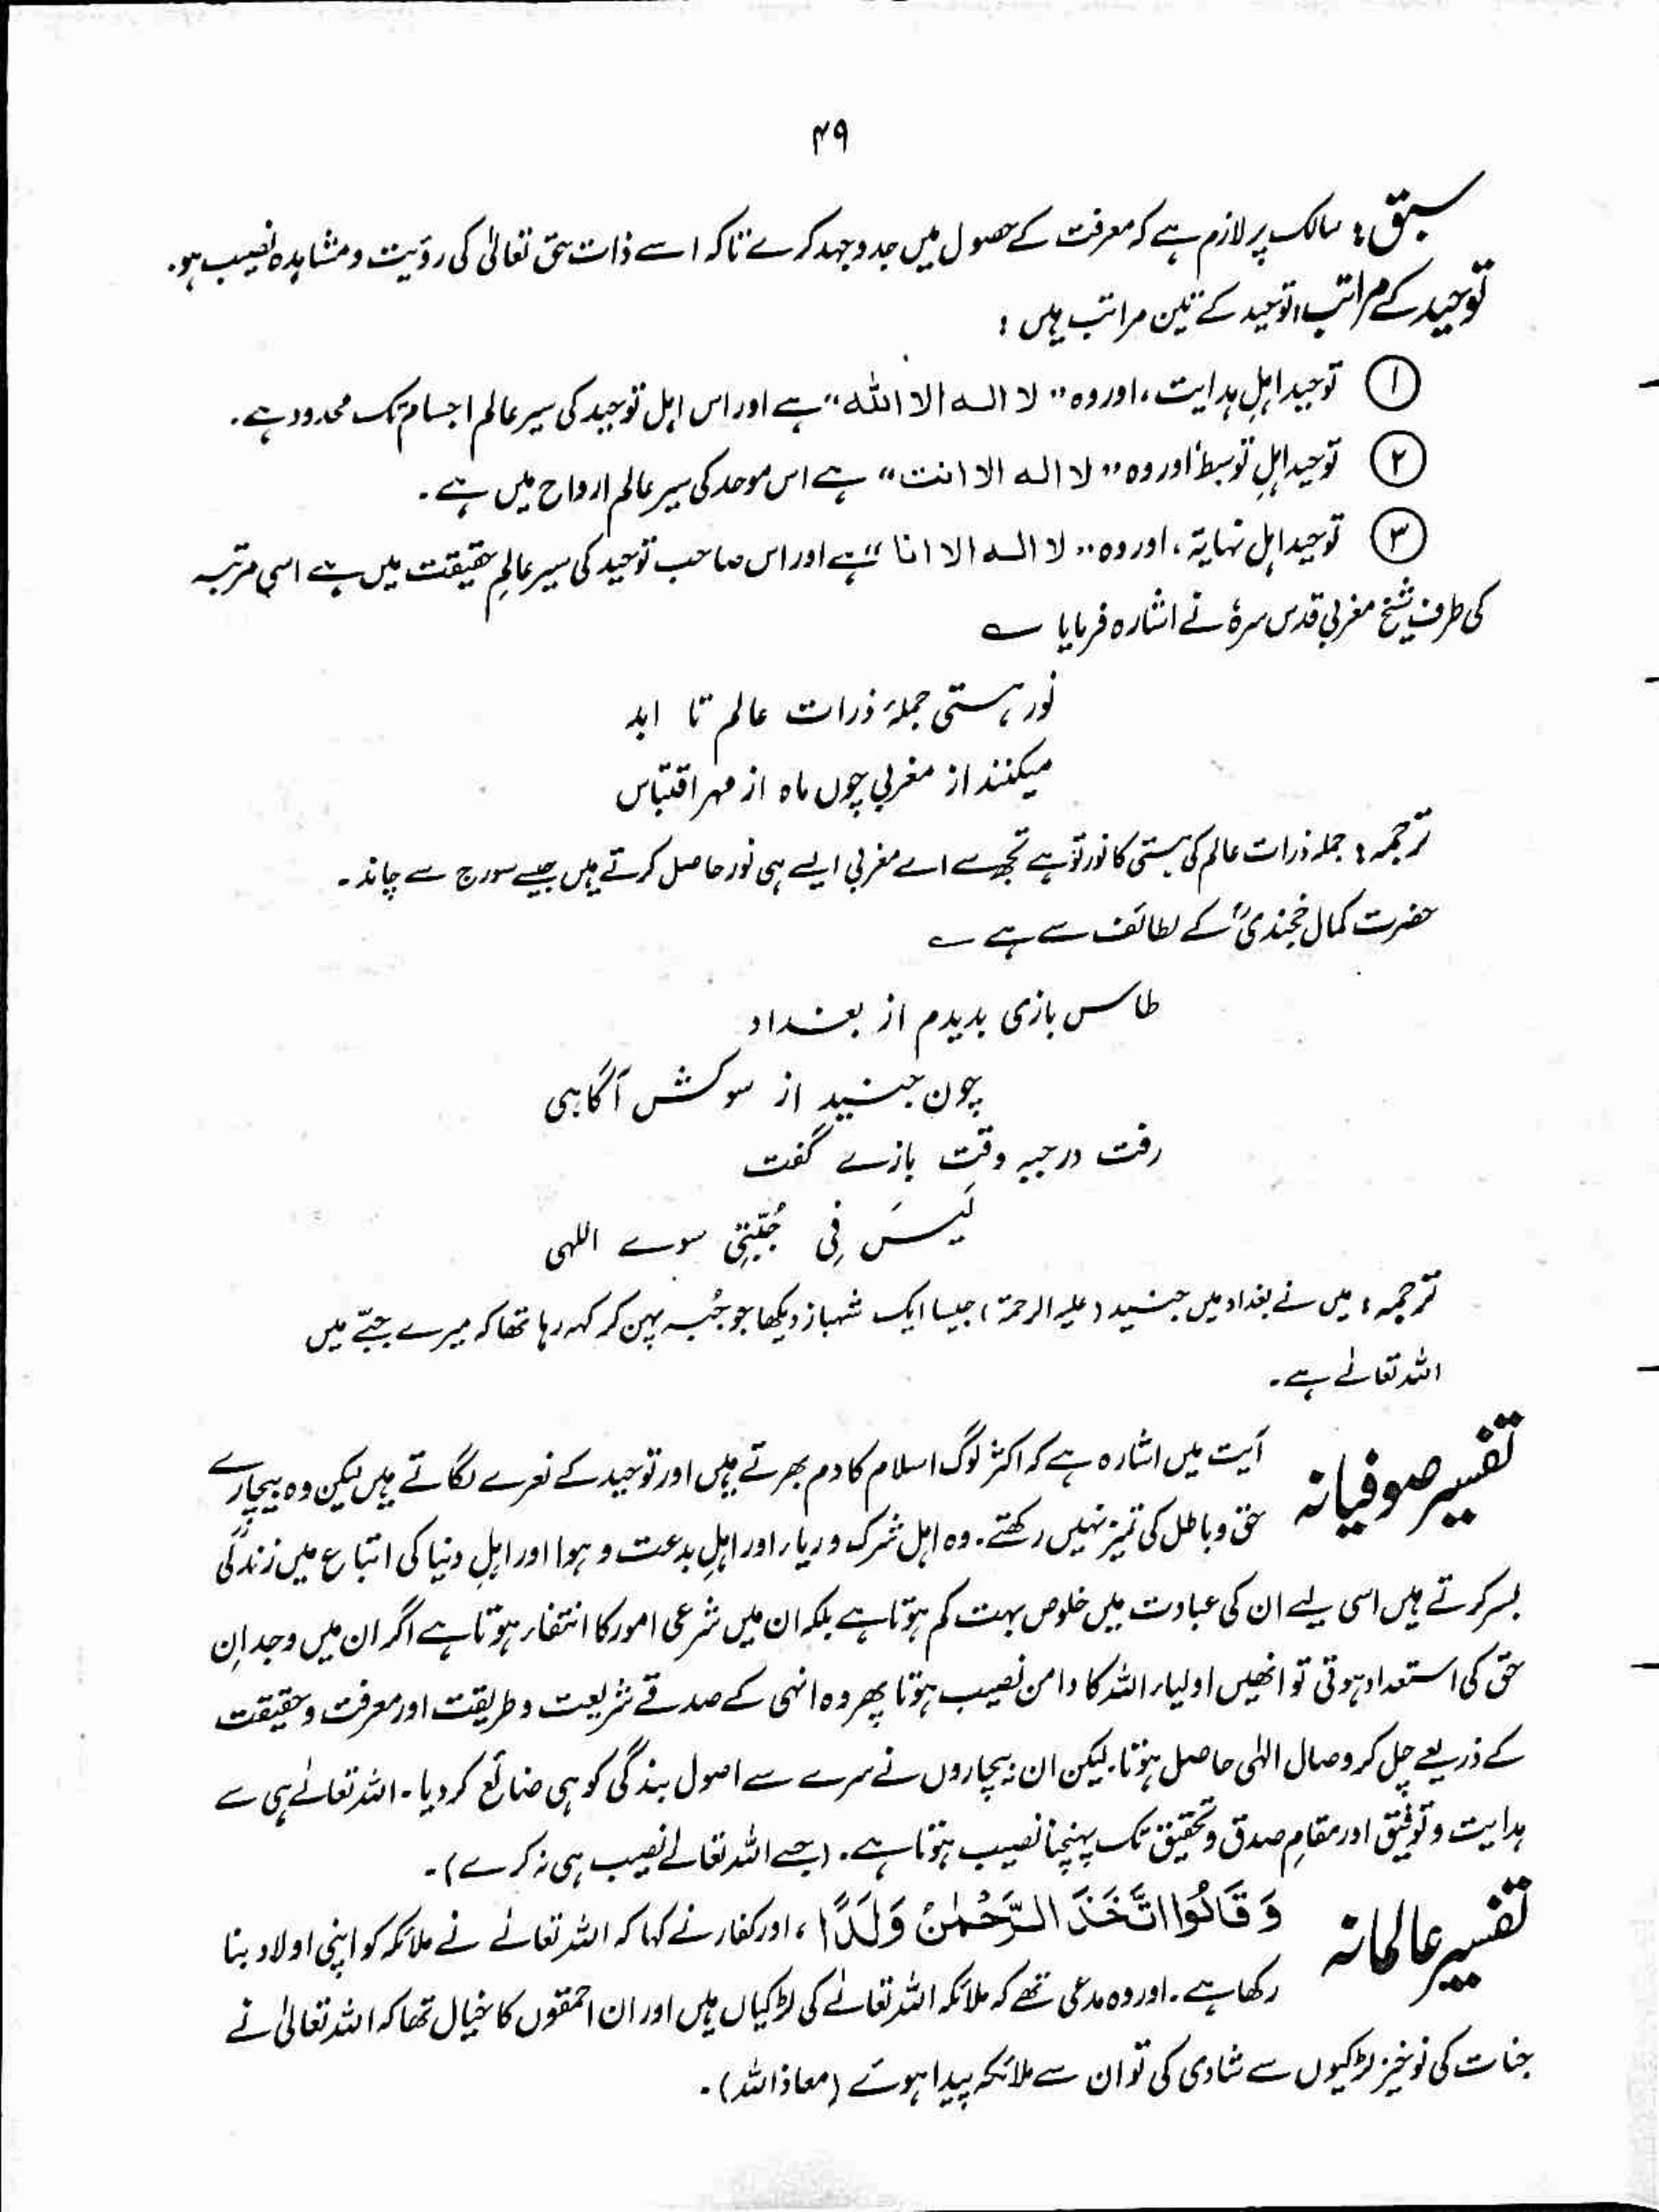 ۴۹
سبق: سالک پر لازم ہے کہ معرفت کے حصول میں جدوجہد کرے تاکہ اسے ذات حق تعالیٰ کی رؤیت و مشاہدہ نصیب ہو۔
توحید کے مراتب، توحید کے تین مراتب ہیں :
① توحید اہلِ ہدایت، اور وہ "لا الہ الا اللہ" ہے اور اس اہل توحید کی سیر عالم اجسام تک محدود ہے۔
② توحید اہلِ توسط اور وہ "لا الہ الا انت" ہے اس موحد کی سیر عالم ارواح میں ہے۔
③ توحید اہل نہایۃ، اور وہ "لا الہ الا انا" ہے اور اس صاحب توحید کی سیر عالمِ حقیقت میں ہے اسی مرتبہ
کی طرف شیخ مغربی قدس سرہٗ نے اشارہ فرمایا ؎
نور ہستی جملۂ ذرات عالم تا ابد
میکنند از مغربی چوں ماہ از مہر اقتباس
ترجمہ: جملہ ذرات عالم کی ہستی کا نور تو ہے تجھ سے اے مغربی ایسے ہی نور حاصل کرتے ہیں جیسے سورج سے چاند۔
حضرت کمال خجندیؒ کے لطائف سے ہے ؎
طاس بازی بدیدم از بغداد
چون جنید از سوکش آگاہی
رفت در جبہ وقت بازے گفت
لَیسَ فِی جُبَّتِی سوے اللہی
ترجمہ: میں نے بغداد میں جنید (علیہ الرحمۃ) جیسا ایک شہباز دیکھا جو جُبہ پہن کر کہہ رہا تھا کہ میرے جبّے میں
اللہ تعالےٰ ہے۔
تفسیر صوفیانہ آیت میں اشارہ ہے کہ اکثر لوگ اسلام کا دم بھرتے ہیں اور توحید کے نعرے لگاتے ہیں لیکن وہ بیچارے
حق و باطل کی تمیز نہیں رکھتے۔ وہ اہل شرک و ریاء اور اہلِ بدعت و ہوا اور اہلِ دنیا کی اتباع میں زندگی
بسر کرتے ہیں اسی لیے ان کی عبادت میں خلوص بہت کم ہوتا ہے بلکہ ان میں شرعی امور کا انتفاء ہوتا ہے اگر ان میں وجدانِ
حق کی استعداد ہوتی تو انھیں اولیاء اللہ کا دامن نصیب ہوتا پھر وہ انہی کے صدقے شریعت و طریقت اور معرفت و حقیقت
کے ذریعے چل کر وصال الہٰی حاصل ہوتا۔ لیکن ان بیچاروں نے سرے سے اصول بندگی کو ہی ضائع کر دیا۔ اللہ تعالےٰ ہی سے
ہدایت و توفیق اور مقامِ صدق و تحقیق تک پہنچنا نصیب ہوتا ہے۔ (جسے اللہ تعالےٰ نصیب ہی نہ کرے)۔
تفسیر عالمانہ وَقَالُوا اتَّخَذَ الرَّحْمٰنُ وَلَدًا ، اور کفار نے کہا کہ اللہ تعالےٰ نے ملائکہ کو اپنی اولاد بنا
رکھا ہے۔ اور وہ مدعی تھے کہ ملائکہ اللہ تعالےٰ کی لڑکیاں ہیں اور ان احمقوں کا خیال تھا کہ اللہ تعالیٰ نے
جنات کی نوخیز لڑکیوں سے شادی کی تو ان سے ملائکہ پیدا ہوئے (معاذ اللہ)۔